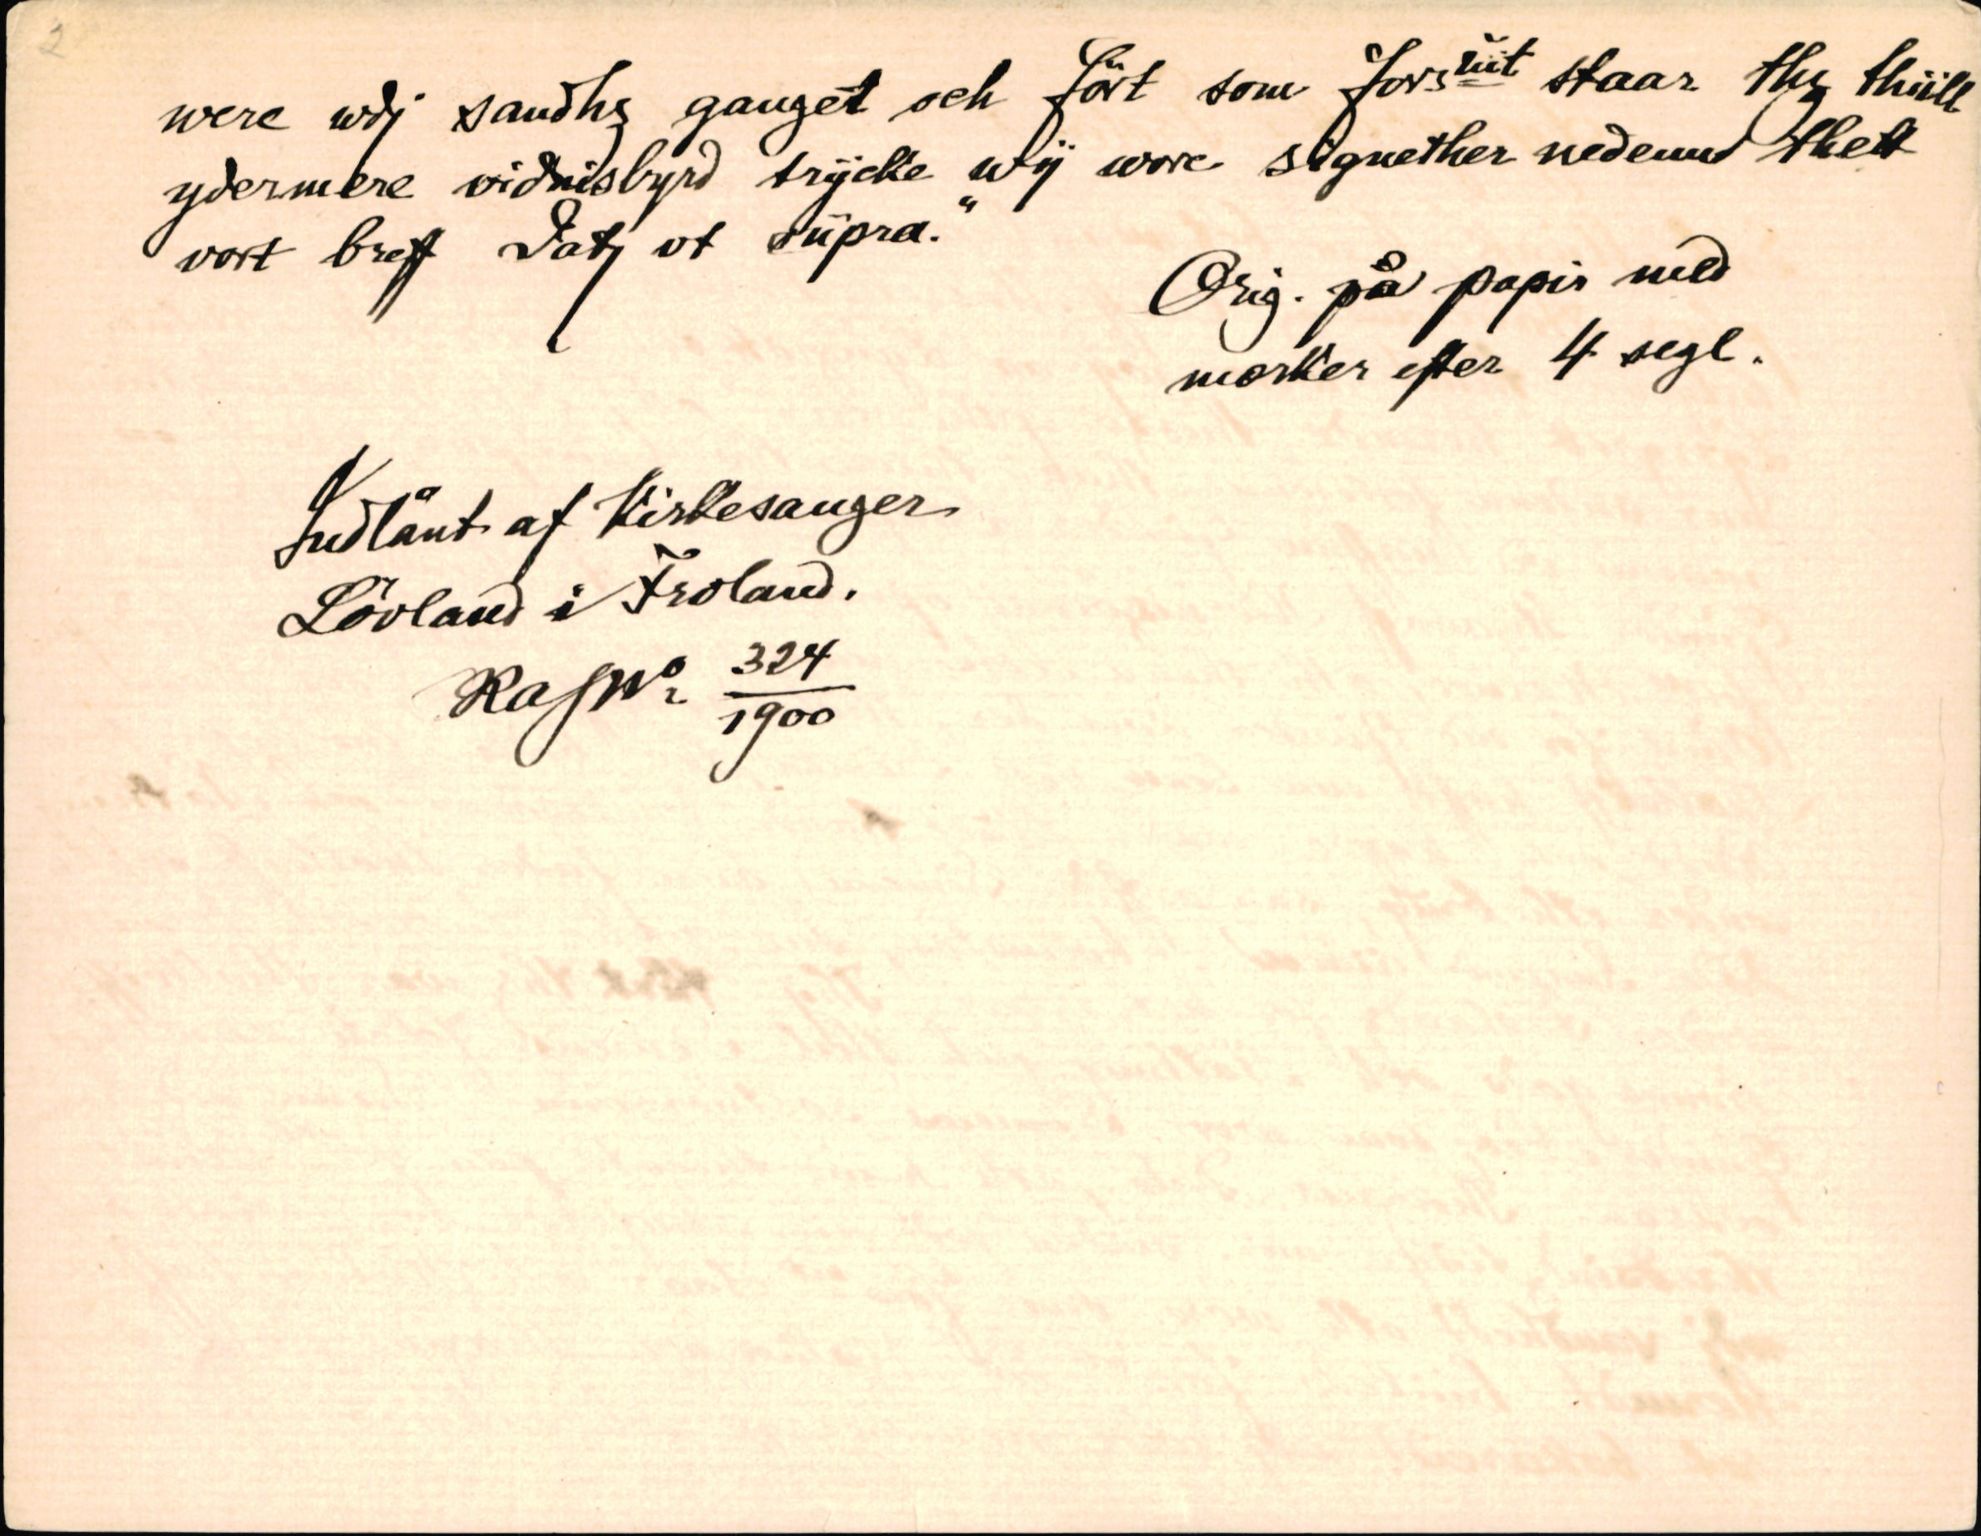 2
were wdj sandhz ganget och fört som forsuit staar thz thiill
ydermere vidnisbyrd trÿcke wÿ wore signether nedenud thett
vort breff Datj vt süpra."
Orig. på papir med
mærker efter 4 segl.
Indlånt af Kirkesanger
Lövland i Froland.
Ra J No 324
1900